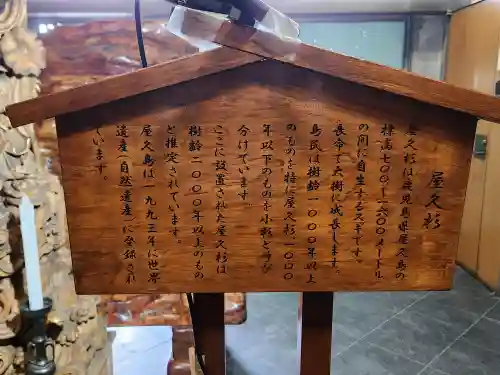 屋久杉
屋久杉は鹿児島県屋久島の
標高七〇〇～一六〇〇メートル
の間に自生するスギです。
長命で大樹に成長します。
島民は樹齢一〇〇〇年以上
のものを特に屋久杉一〇〇〇
年以下のものを小杉とヲシ
分けています。
ここに設置された屋久杉は
樹齢二〇〇〇年以上のもの
と推定されています。
屋久島は一九九三年に世界
遺産(自然遺産)に登録され
ています。